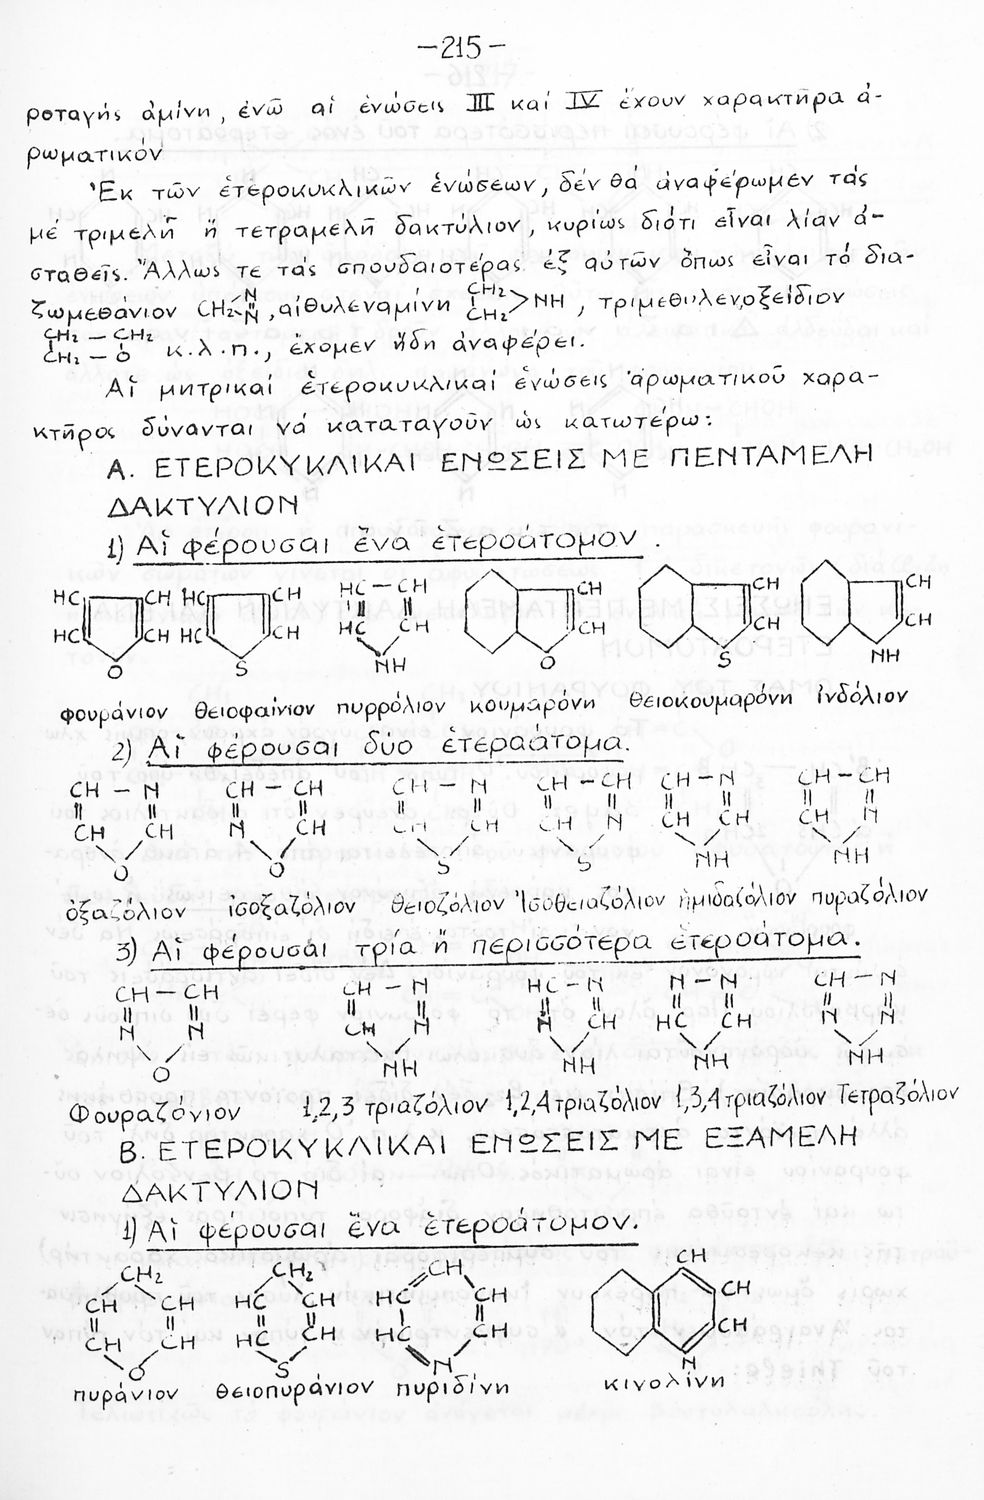 -215-
ροταγής ἀμίνη, ἐνῶ αἱ ἑνώσεις III καί IV ἔχουν χαρακτῆρα ἀ-
ρωματικόν
Ἐκ τῶν ἑτεροκυκλικῶν ἑνώσεων, δέν θά ἀναφέρωμεν τάς
μέ τριμελῆ ἤ τετραμελῆ δακτύλιον, κυρίως διότι εἶναι λίαν ἀ-
σταθεῖς. Ἄλλως τε τάς σπουδαιοτέρας ἐξ αὐτῶν ὅπως εἶναι τό δια-
ζωμεθάνιον CH2<N=N, αἰθυλεναμίνη CH2 CH2>NH, τριμεθυλενοξείδιον
CH2 - CH2
CH2 - O κ.λ.π., ἔχομεν ἤδη ἀναφέρει.
Αἱ μητρικαί ἑτεροκυκλικαί ἑνώσεις ἀρωματικοῦ χαρα-
κτῆρος δύνανται νά καταταγοῦν ὡς κατωτέρω:
Α. ΕΤΕΡΟΚΥΚΛΙΚΑΙ ΕΝΩΣΕΙΣ ΜΕ ΠΕΝΤΑΜΕΛΗ
ΔΑΚΤΥΛΙΟΝ
1) Αἱ φέρουσαι ἕνα ἑτεροάτομον.
HC CH HC CH HC - CH CH CH CH
HC CH HC CH HC CH CH CH CH
O S NH O S NH
φουράνιον θειοφαίνιον πυρρόλιον κουμαρόνη θειοκουμαρόνη ἰνδόλιον
2) Αἱ φέρουσαι δύο ἑτεραάτομα.
CH - N CH - CH CH - N CH - CH CH - N CH - CH
CH CH N CH CH CH CH N CH CH CH N
O O S S NH NH
ὀξαζόλιον ἰσοξαζόλιον θειοζόλιον Ἰσοθειαζόλιον ἡμιδαζόλιον πυραζόλιον
3) Αἱ φέρουσαι τρία ἤ περισσότερα ἑτεροάτομα.
CH - CH CH - N HC - N N - N CH - N
N N CH N N CH HC CH N N
O NH NH NH NH
Φουραζόνιον 1,2,3 τριαζόλιον 1,2,4 τριαζόλιον 1,3,4 τριαζόλιον Τετραζόλιον
Β. ΕΤΕΡΟΚΥΚΛΙΚΑΙ ΕΝΩΣΕΙΣ ΜΕ ΕΞΑΜΕΛΗ
ΔΑΚΤΥΛΙΟΝ
1) Αἱ φέρουσαι ἕνα ἑτεροάτομον.
CH2 CH2 CH CH
CH CH HC CH HC CH CH
CH CH HC CH HC CH CH
O S N N
πυράνιον θειοπυράνιον πυριδίνη κινολίνη